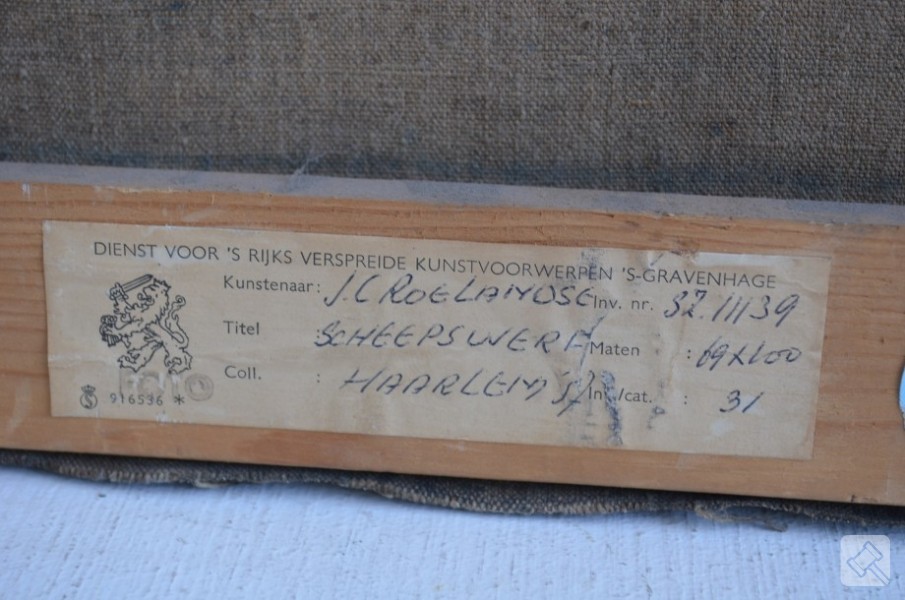 DIENST VOOR 'S RIJKS VERSPREIDE KUNSTVOORWERPEN 'S-GRAVENHAGE
Kunstenaar: J.C ROELANDSE Inv. nr. 37.11139
Titel : SCHEEPSWERF Maten : 69x100
Coll. : HAARLEM Inv./cat. : 31
916536 *